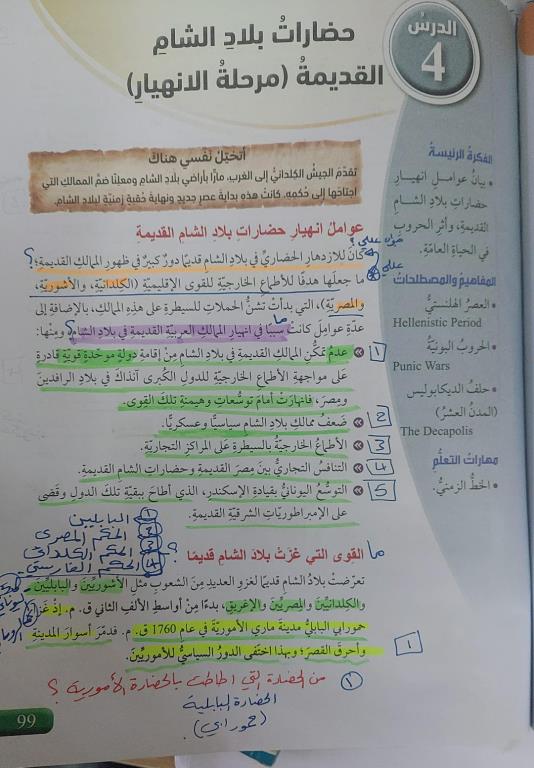 الدرسُ
4
حضاراتُ بلادِ الشامِ
القديمةُ (مرحلةُ الانهيارِ)
الفكرةُ الرئيسةُ
• بيانُ عواملِ انهيارِ
حضاراتِ بلادِ الشامِ
القديمةِ، وأثرِ الحروبِ
في الحياةِ العامّةِ.
المفاهيمُ والمصطلحاتُ
• العصرُ الهلنستيُّ
Hellenistic Period
• الحروبُ البونيّةُ
Punic Wars
• حلفُ الديكابوليس
(المدنُ العشرُ)
The Decapolis
مهاراتُ التعلُّمِ
• الخطُّ الزمنيُّ.
أتخيّلُ نفْسي هناكَ
تقدّمَ الجيشُ الكِلدانيُّ إلى الغربِ، مارًّا بأراضي بلادِ الشامِ ومعلِنًا ضمَّ الممالكِ التي
اجتاحَها إلى حُكمِهِ. كانتْ هذهِ بدايةَ عصرٍ جديدٍ ونهايةَ حُقبةٍ زمنيّةٍ لبلادِ الشامِ.
عواملُ انهيارِ حضاراتِ بلادِ الشامِ القديمةِ
كانَ للازدهارِ الحضاريِّ في بلادِ الشامِ قديمًا دورٌ كبيرٌ في ظهورِ الممالكِ القديمةِ؛ ؟
ما جعلَها هدفًا للأطماعِ الخارجيّةِ للقوى الإقليميّةِ (الكِلدانيّةِ، والأشوريّةِ،
والمصريّةِ)، التي بدأتْ تشنُّ الحملاتِ للسيطرةِ على هذهِ الممالكِ، بالإضافةِ إلى
عدّةِ عواملَ كانتْ سببًا في انهيارِ الممالكِ العربيةِ القديمةِ في بلادِ الشامِ، ومنْها:
1 عدمُ تمكُّنِ الممالكِ القديمةِ في بلادِ الشامِ مِنْ إقامةِ دولةٍ موحَّدةٍ قويّةٍ قادرةٍ
على مواجهةِ الأطماعِ الخارجيّةِ للدولِ الكُبرى آنذاكَ في بلادِ الرافدينِ
ومِصرَ، فانهارَتْ أمامَ توسُّعاتِ وهيمنةِ تلكَ القوى.
2 ضَعفُ ممالكِ بلادِ الشامِ سياسيًّا وعسكريًّا.
3 الأطماعُ الخارجيّةُ بالسيطرةِ على المراكزِ التجاريّةِ.
4 التنافسُ التجاريُّ بينَ مِصرَ القديمةِ وحضاراتِ الشامِ القديمةِ.
5 التوسُّعُ اليونانيُّ بقيادةِ الإسكندرِ، الذي أطاحَ ببقيّةِ تلكَ الدولِ وقضى
على الإمبراطوريّاتِ الشرقيّةِ القديمةِ.
① البابليين
② الحكم المصري
③ الحكم الكلداني
④ الحكم الفارسي
ما القوى التي غزَتْ بلادَ الشامِ قديمًا ؟
تعرّضتْ بلادُ الشامِ قديمًا لغزوِ العديدِ منَ الشعوبِ مثلِ الأشوريّينَ والبابليّينَ
والكِلدانيّينَ والمصريّينَ والإغريقِ، بدءًا مِنْ أواسطِ الألفِ الثاني ق. م. إذْ غزا
حمورابي البابليُّ مدينةَ ماري الأموريّةَ في عامِ 1760 ق. م. فدمّرَ أسوارَ المدينةِ
وأحرقَ القصرَ؛ وبهذا اختفى الدورُ السياسيُّ للأموريّينَ. 1
② من الحضارة التي أطاحت بالحضارة الأمورية ؟
الحضارة البابلية
(حمورابي)
99